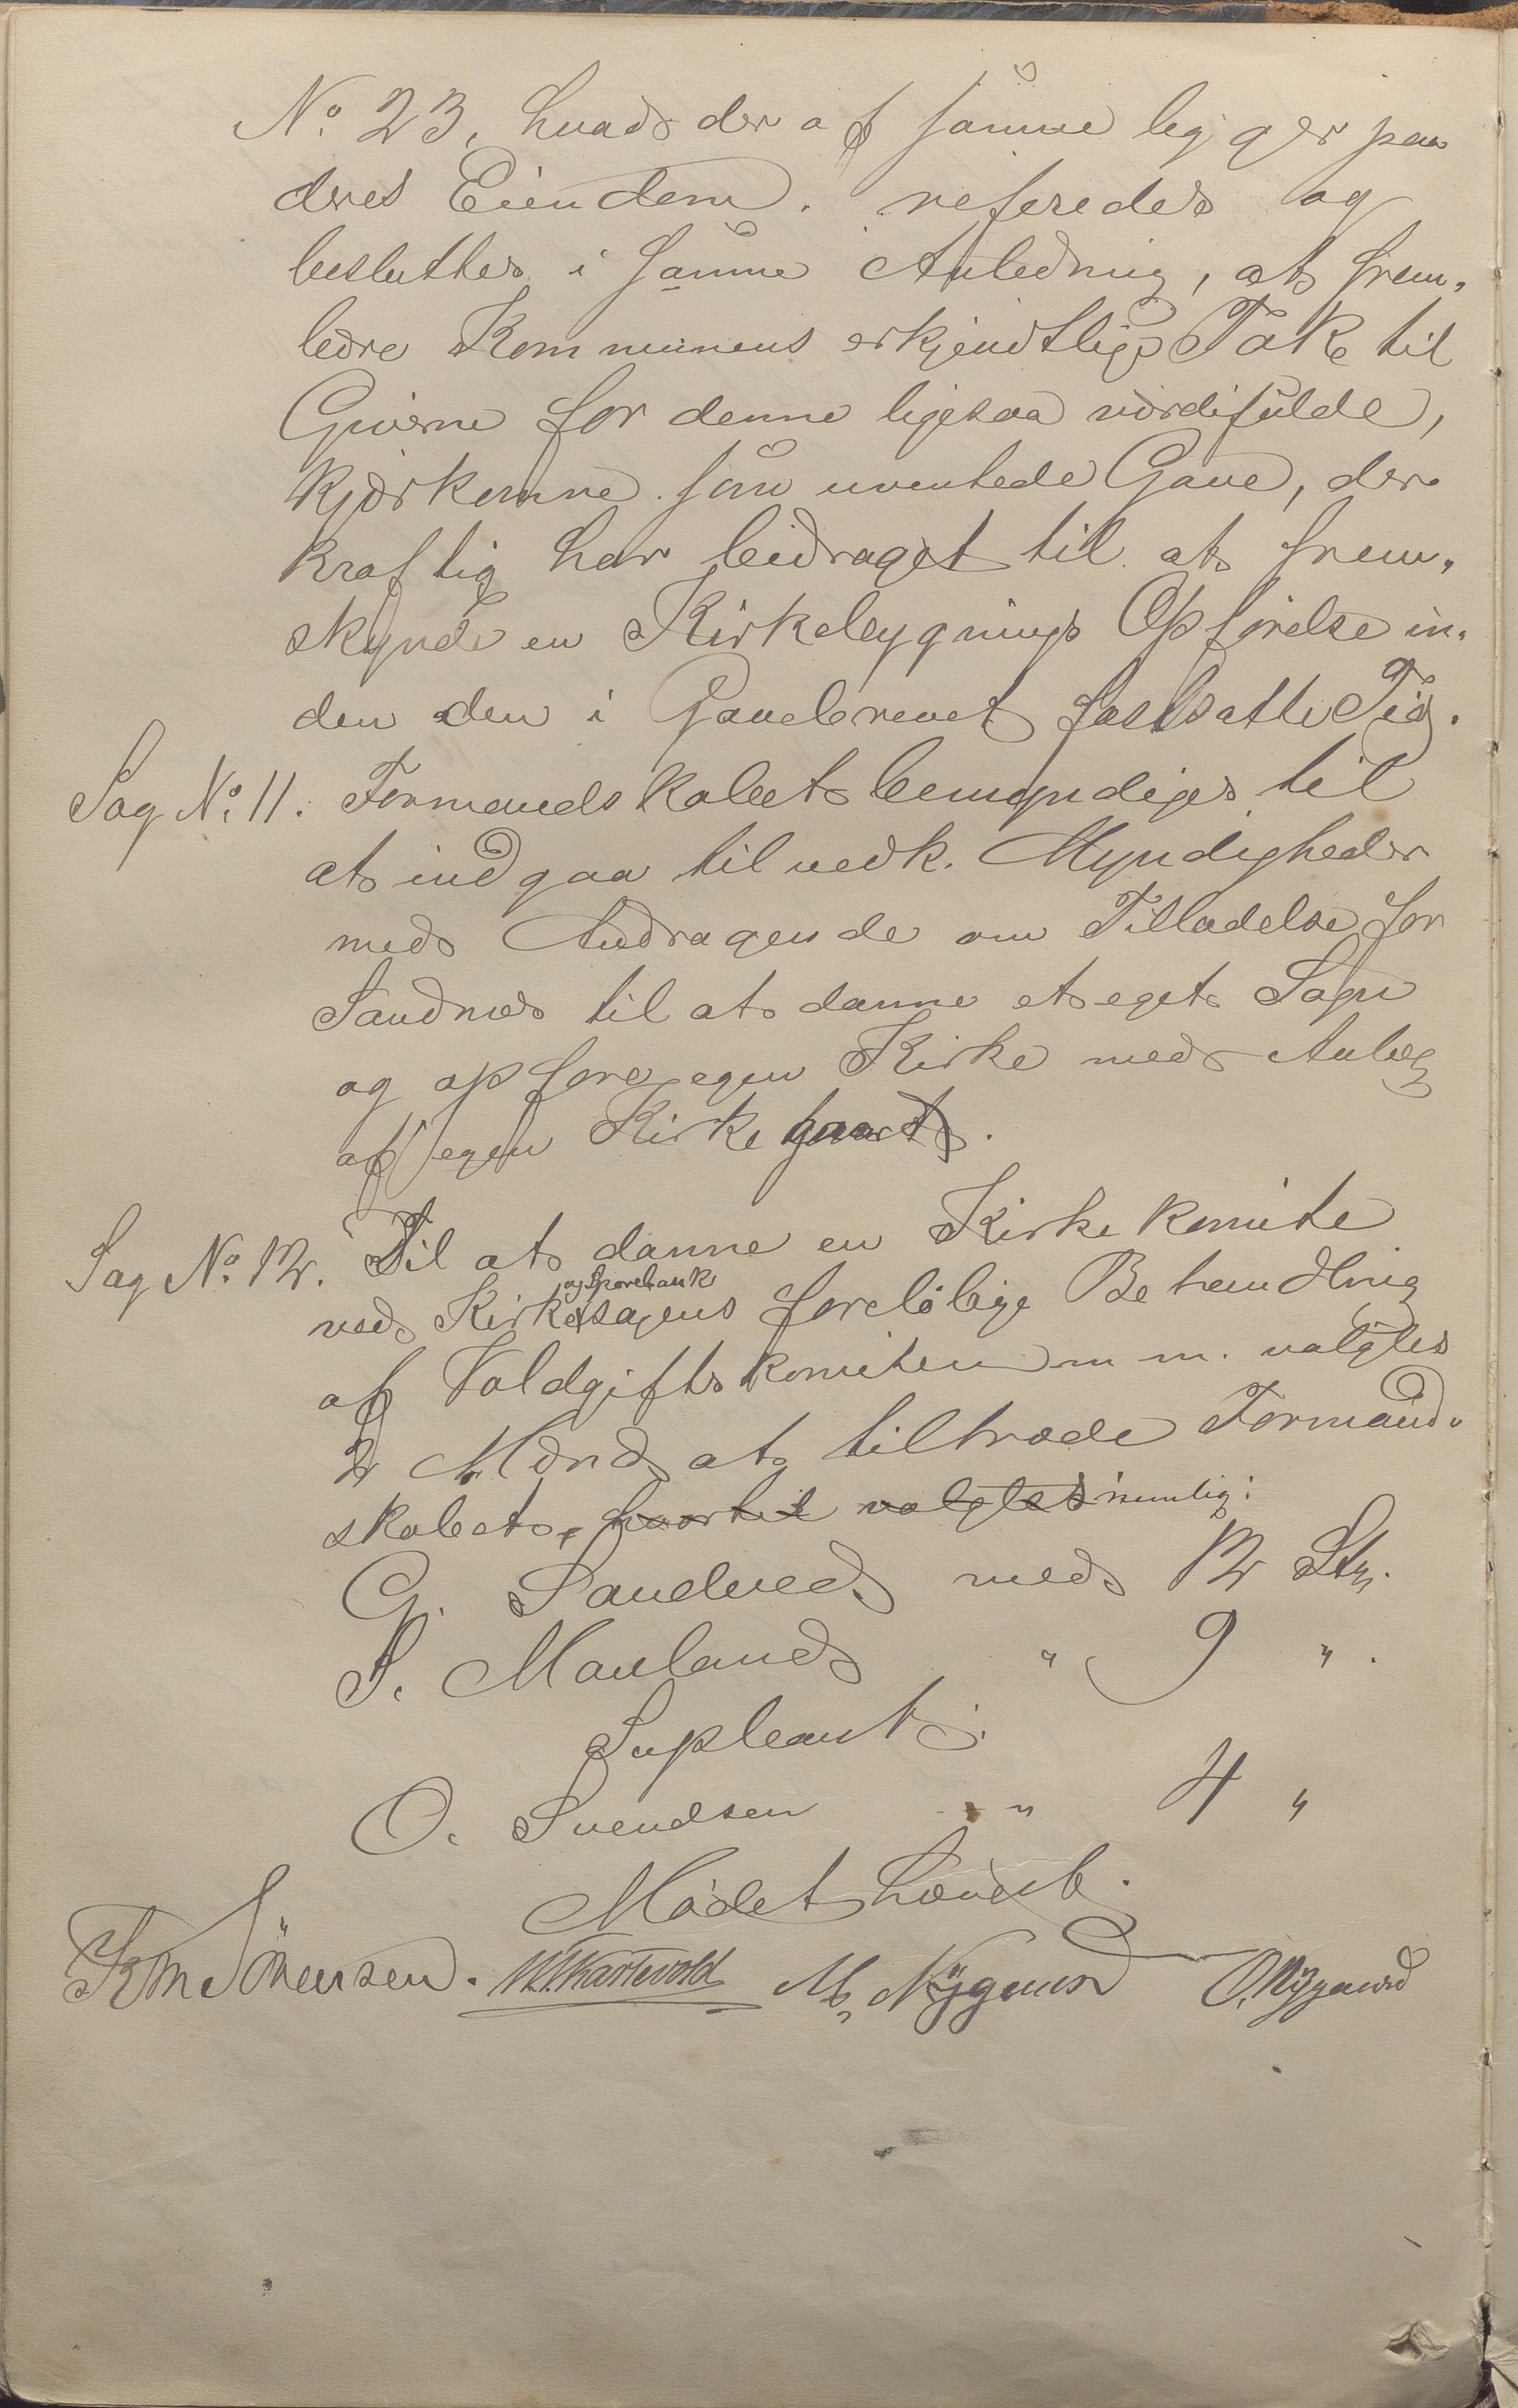 No. 23, hvad der af samme ligger paa
deres Eiendom. refereredes og
besluttes i samme Anledning, at frem-
bære Kommunens erkjendtlige Tak til
Giverne for denne ligesaa værdifulde,
kjærkomne som uventede Gave, der
kraftig har bidraget til at frem-
skynde en Kirkebygnings Opførelse in-
den den i Gavebrevet fastsatte Tid.
Sag No. 11. Formandskabet bemyndiges til
at indgaa til vedk. Myndigheder
med Andragende om Tilladelse for
Sandnæs til at danne et eget Sogn
og opføre egen Kirke med Anlæg
af egen Kirkegaard.
Sag No. 12. Til at danne en Kirkekomite
og Sparebank
ved Kirkesagens foreløbige Behandling
af Voldgiftskomiteen m m. valgtes
2 Mænd at tiltræde Formand-
skabet, hvortil valgtes nemlig:
G. Sandved med 12 St.
S. Mauland " 9 ".
Supleant:
O. Svendsen " 4 "
Mødet hævet.
K M Sørensen. M. Nygaard O. Nygaard